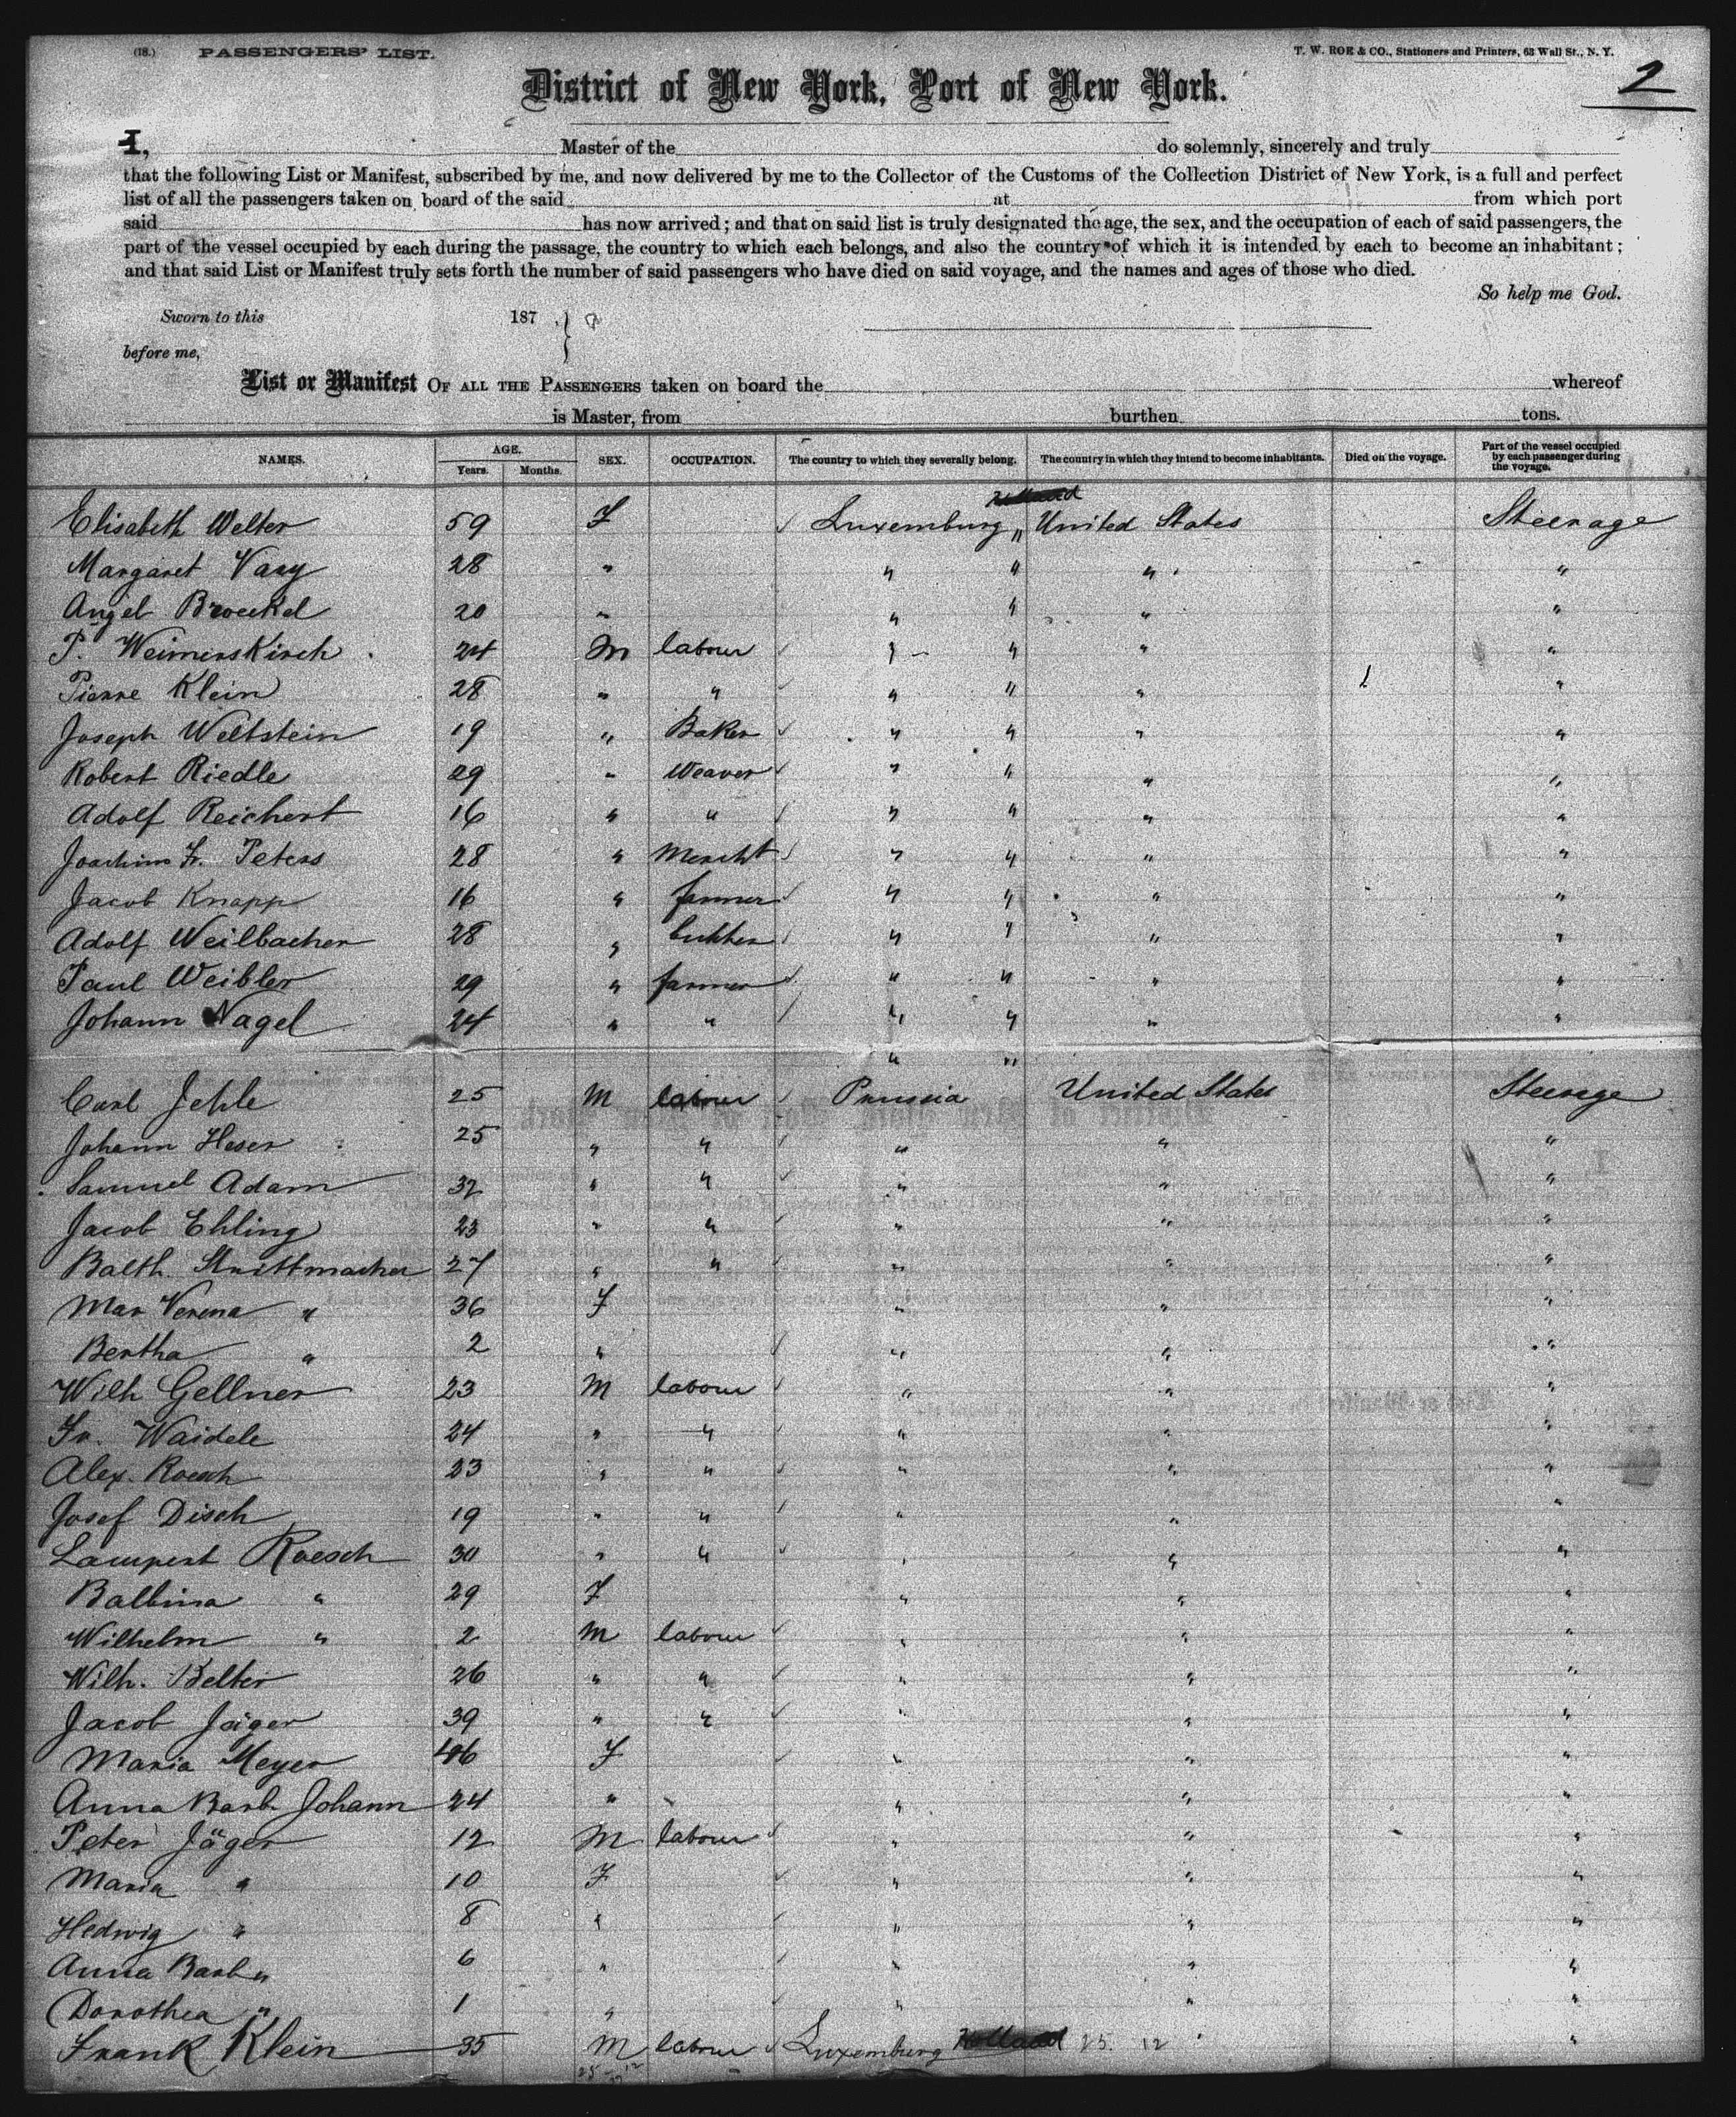 (18.) PASSENGERS' LIST. T. W. ROE & CO., Stationers and Printers, 63 Wall St., N. Y.
2
District of New York, Port of New York.
I, Master of the do solemnly, sincerely and truly
that the following List or Manifest, subscribed by me, and now delivered by me to the Collector of the Customs of the Collection District of New York, is a full and perfect
list of all the passengers taken on board of the said at from which port
said has now arrived; and that on said list is truly designated the age, the sex, and the occupation of each of said passengers, the
part of the vessel occupied by each during the passage, the country to which each belongs, and also the country of which it is intended by each to become an inhabitant;
and that said List or Manifest truly sets forth the number of said passengers who have died on said voyage, and the names and ages of those who died.
So help me God.
Sworn to this 187
before me,
List or Manifest OF ALL THE PASSENGERS taken on board the whereof
is Master, from burthen tons.
NAMES. AGE. Years. Months. SEX. OCCUPATION. The country to which they severally belong. The country in which they intend to become inhabitants. Died on the voyage. Part of the vessel occupied by each passenger during the voyage.
Elisabeth Welter 59 F Luxemburg " United States Steerage
Margaret Vacy 28 " " " " "
Angel Broeckel 20 " " " " "
P. Weimerskirch 24 M labour " " " "
Pierre Klein 28 " " " " " 1 "
Joseph Weltstein 19 " Baker " " " "
Robert Riedle 29 " Weaver " " " "
Adolf Reichert 16 " " " " " "
Joachim Fr. Peters 28 " Mercht " " " "
Jacob Knapp 16 " farmer " " " "
Adolf Weilbacher 28 " " " " "
Paul Weibler 29 " farmer " " " "
Johann Nagel 24 " " " " " "
" "
Carl Jehle 25 M labour Prussia United States Steerage
Johann Heser 25 " " " " "
Samuel Adam 32 " " " " "
Jacob Ehling 23 " " " " "
Balth. 27 " " " " "
Mar Verena " 36 F " " "
Bertha " 2 " " " "
Wilh Gellner 23 M labour " " "
Fr. Waidele 24 " " " " "
Alex. Roesch 23 " " " " "
Josef Disch 19 " " " " "
Lampert Roesch 30 " " " " "
Balbina " 29 F " " "
Wilhelm " 2 M labour " " "
Wilh. Belter 26 " " " " "
Jacob Jäger 39 " " " " "
Maria Meyer 46 F " " "
Anna Barb. Johann 24 " " " "
Peter Jäger 12 M labour " " "
Maria " 10 F " " "
Hedwig " 8 " " " "
Anna Barb " 6 " " " "
Dorothea " 1 " " " "
Frank Klein 35 M labour Luxemburg 25. 12 "